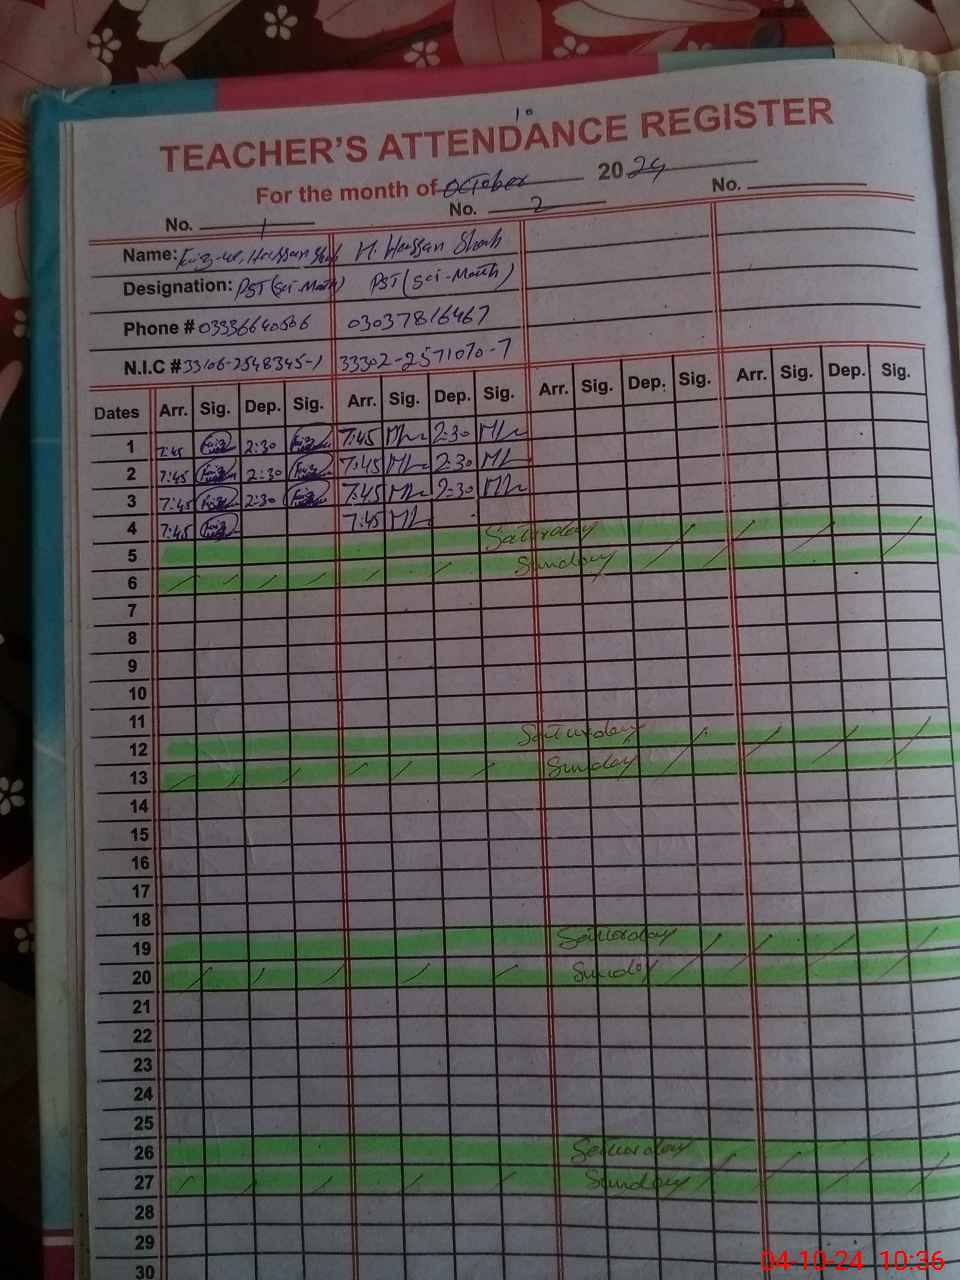 10
TEACHER'S ATTENDANCE REGISTER
For the month of October 2024
No. 1 No. 2 No.
Name: Faiz-ul-Hassan Shah H. Hassan Shah
Designation: PST (Sci-Math) PST (Sci-Math)
Phone # 03336640506 03037816467
N.I.C # 33106-2548345-1 33302-2571070-7
Dates Arr. Sig. Dep. Sig. Arr. Sig. Dep. Sig. Arr. Sig. Dep. Sig. Arr. Sig. Dep. Sig.
1 7:45 2:30 7:45 2:30
2 7:45 2:30 7:45 2:30
3 7:45 2:30 7:45 2:30
4 7:45 7:45
5 Saturday
6 Sunday
7
8
9
10
11
12 Saturday
13 Sunday
14
15
16
17
18
19 Saturday
20 Sunday
21
22
23
24
25
26 Saturday
27 Sunday
28
29
30
04-10-24 10:36